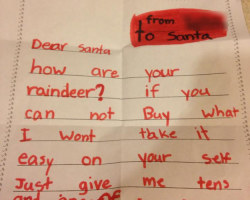 from
to Santa
Dear Santa
how are your
raindeer? if you
can not Buy what
I wont take it
easy on your self
Just give me tens